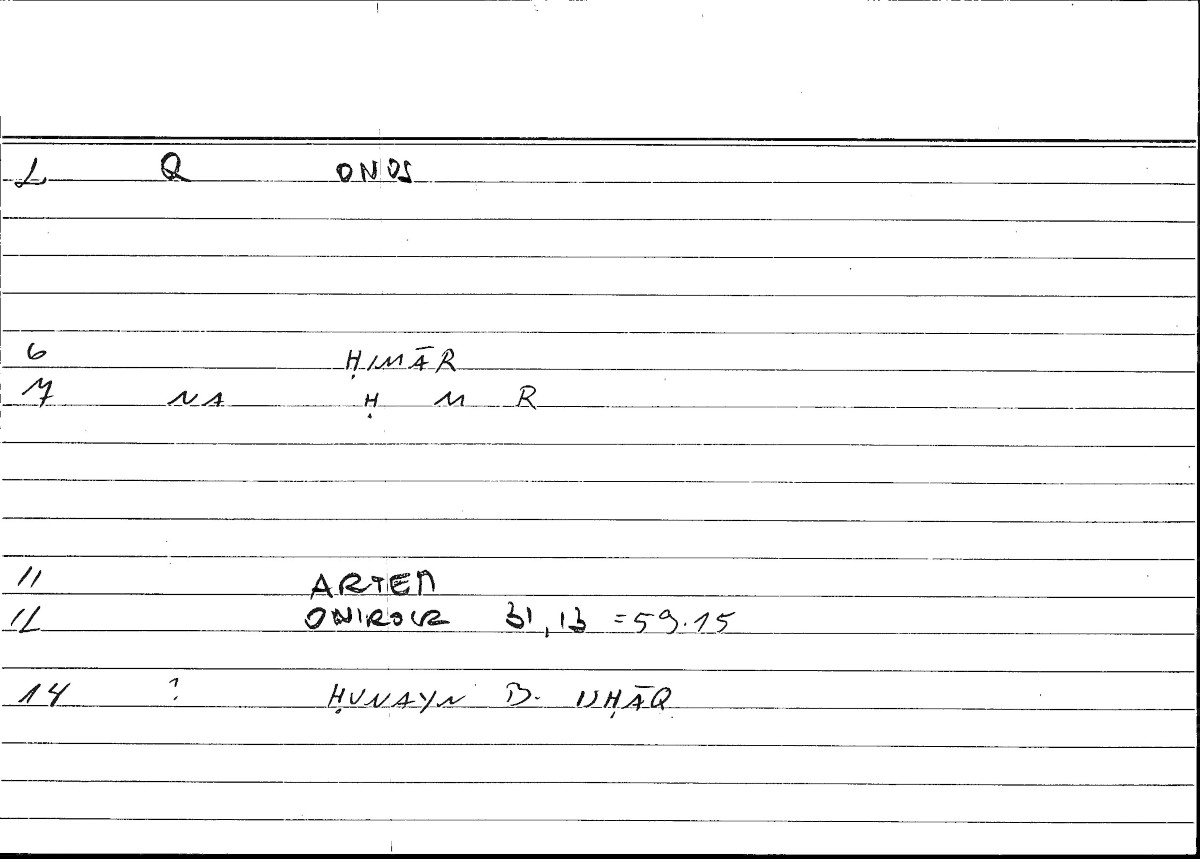 2 Q ONOS
6 ḤIMĀR
7 NA Ḥ M R
11 ARTEM
12 ONIROCR 31,13 =59.15
14 ? ḤUNAYN B. ISḤĀQ